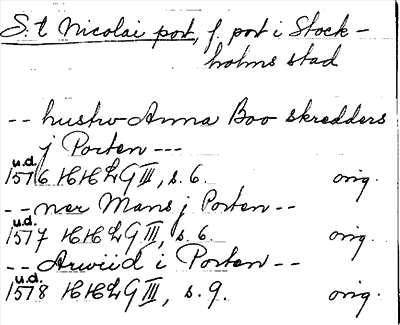 S:t Nicolai port, f. port i Stock-
holms stad
-- hustro Anna Boo skredders
j Porten ---
u.d.
1576 HHLG III, s. 6. orig.
-- ner Mans j Porten --
u.d.
1577 HHLG III, s. 6. orig.
-- Arwiid i Porten --
u.d.
1578 HHLG III, s. 9. orig.